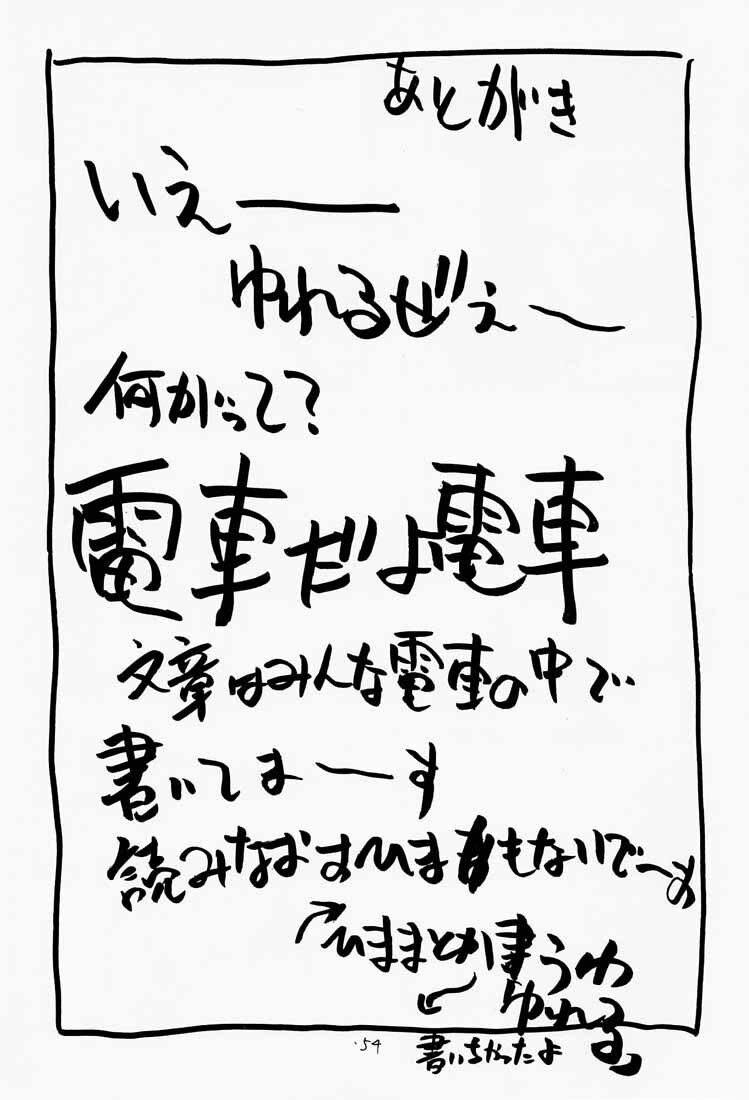 あとがき
いえー
ゆれるぜぇ〜
何がって?
電車だよ電車
文章はみんな電車の中で
書いてま〜す
読みなおすひまもないで〜す
ひままとか書うわ
ゆれる。
書いちゃったよ
・54